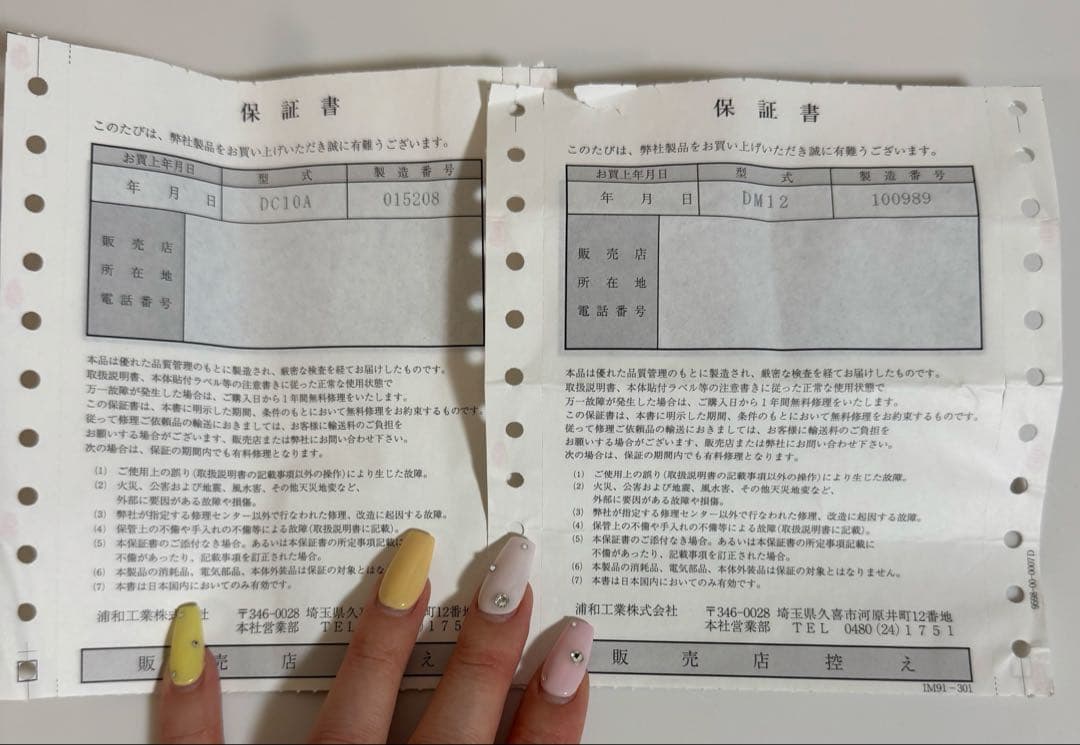 保証書
このたびは、弊社製品をお買い上げいただき誠に有難うございます。
お買上年月日 型式 製造番号
年 月 日 DC10A 015208
販売店
所在地
電話番号
本品は優れた品質管理のもとに製造され、厳密な検査を経てお届けしたものです。
取扱説明書、本体貼付ラベル等の注意書きに従った正常な使用状態で
万一故障が発生した場合は、ご購入日から1年間無料修理をいたします。
この保証書は、本書に明示した期間、条件のもとにおいて無料修理をお約束するものです。
従って修理ご依頼品の輸送におきましては、お客様に輸送料のご負担を
お願いする場合がございます、販売店または弊社にお問い合わせ下さい。
次の場合は、保証の期間内でも有料修理となります。
(1) ご使用上の誤り(取扱説明書の記載事項以外の操作)により生じた故障。
(2) 火災、公害および地震、風水害、その他天災地変など、
外部に要因がある故障や損傷。
(3) 弊社が指定する修理センター以外で行なわれた修理、改造に起因する故障。
(4) 保管上の不備や手入れの不備等による故障(取扱説明書に記載)。
(5) 本保証書のご添付なき場合。あるいは本保証書の所定事項記載に
不備があったり、記載事項を訂正された場合。
(6) 本製品の消耗品、電気部品、本体外装品は保証の対象とはな
(7) 本書は日本国内においてのみ有効です。
浦和工業株式会社 〒346-0028 埼玉県久喜 町12番地
本社営業部 TEL 1751
販売店 え
保証書
このたびは、弊社製品をお買い上げいただき誠に有難うございます。
お買上年月日 型式 製造番号
年 月 日 DM12 100989
販売店
所在地
電話番号
本品は優れた品質管理のもとに製造され、厳密な検査を経てお届けしたものです。
取扱説明書、本体貼付ラベル等の注意書きに従った正常な使用状態で
万一故障が発生した場合は、ご購入日から1年間無料修理をいたします。
この保証書は、本書に明示した期間、条件のもとにおいて無料修理をお約束するものです。
従って修理ご依頼品の輸送におきましては、お客様に輸送料のご負担を
お願いする場合がございます、販売店または弊社にお問い合わせ下さい。
次の場合は、保証の期間内でも有料修理となります。
(1) ご使用上の誤り(取扱説明書の記載事項以外の操作)により生じた故障。
(2) 火災、公害および地震、風水害、その他天災地変など、
外部に要因がある故障や損傷。
(3) 弊社が指定する修理センター以外で行なわれた修理、改造に起因する故障。
(4) 保管上の不備や手入れの不備等による故障(取扱説明書に記載)。
(5) 本保証書のご添付なき場合。あるいは本保証書の所定事項記載に
不備があったり、記載事項を訂正された場合。
(6) 本製品の消耗品、電気部品、本体外装品は保証の対象とはなりません。
(7) 本書は日本国内においてのみ有効です。
浦和工業株式会社 〒346-0028 埼玉県久喜市河原井町12番地
本社営業部 TEL 0480(24)1751
販売店控え
IM91-301